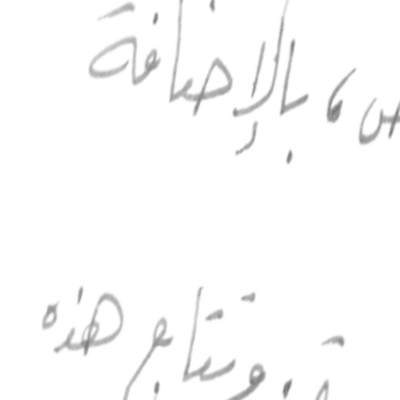 ، بالإضافة
وتتابع هذه